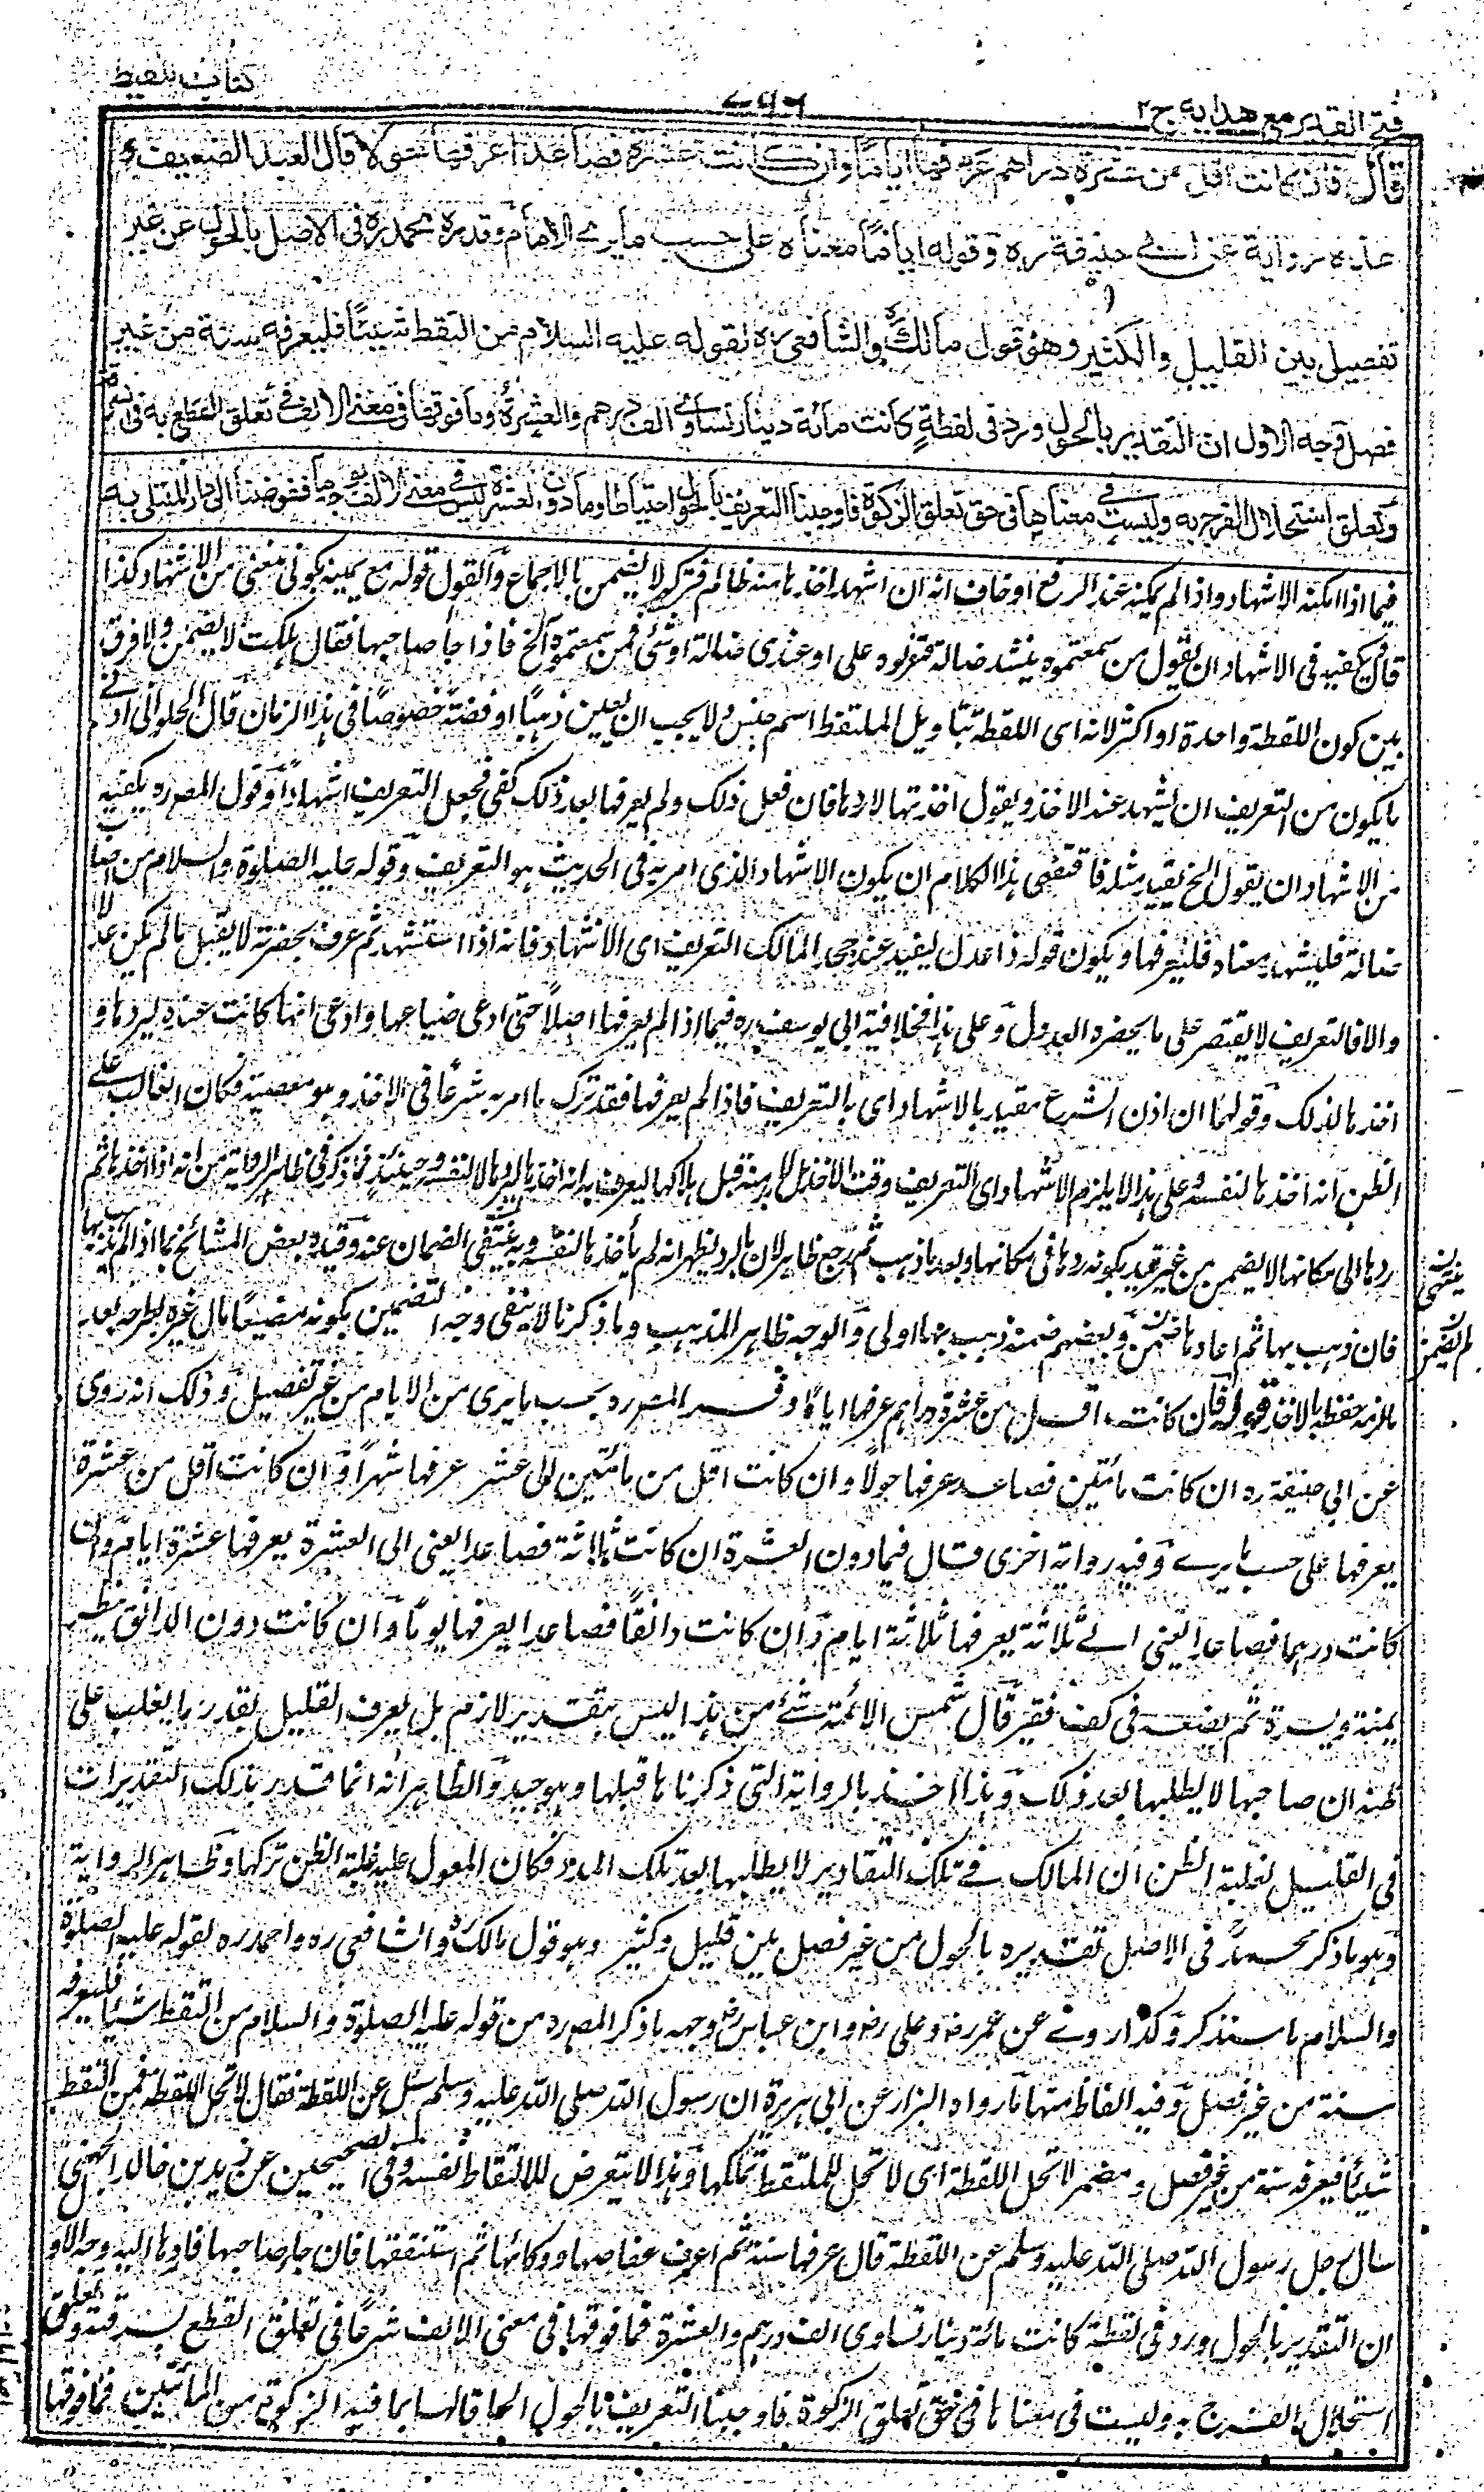 فتح القدير مع هداية ج ٢
كتاب اللقيط
قال فان كانت اقل من عشرة دراهم عرفها اياما وان كانت عشرة فصاعدا عرفها حولا قال العبد الضعيف و
هذه رواية عن ابي حنيفة ره وقوله اياما معناه على حسب ما يرى الامام وقدره محمد ره فى الاصل بالحول من غير
تفصيل بين القليل والكثير وهو قول مالك والشافعي ره لقوله عليه السلام من التقط شيئا فليعرفه سنة من غير
فصل وجه الاول ان التقدير بالحول ورد فى لقطة كانت مائة دينار تساوى الف درهم والعشرة وما فوقها فى معنى الالف فى تعلق القطع به فى السرقة
وتعلق استحلال الفرج به وليست فى معناها فى حق تعلق الزكوة فاوجبنا التعريف بالحول احتياطا وما دون العشرة ليس فى معنى الالف بوجه ما ففوضنا الى راى المبتلى به
فيما اذا امكنه الاشهاد واذا لم يمكنه عند الرفع او خاف انه ان اشهد اخذها منه ظالم فتركه لا يضمن بالاجماع والقول قوله مع يمينه بكونى منعنى من الاشهاد كذا
قال يكفيه فى الاشهاد ان يقول من سمعتموه ينشد ضالة فدلوه على او عندى ضالة او شئ فمن سمعتموه الخ فاذا جاء صاحبها فقال هلكت لا يضمن ولا فرق
بين كون اللقطة واحدة او اكثر لانه اى اللقطة بتاويل الملتقط اسم جنس ولا يجب ان يعين ذهبا او فضة خصوصا فى هذا الزمان قال الحلوانى ادنى
ما يكون من التعريف ان يشهد عند الاخذ ويقول اخذتها لاردها فان فعل ذلك ولم يعرفها بعد ذلك كفى فجعل التعريف اشهادا وقول المص ره يكفيه
من الاشهاد ان يقول الخ يفيد مثله فاقتضى هذا الكلام ان يكون الاشهاد الذى امر به فى الحديث هو التعريف وقوله عليه الصلوة والسلام من اصاب
ضالة فليشهد معناه فليعرفها ويكون قوله ذا عدل ليفيد عند جحد المالك التعريف اى الاشهاد فانه اذا استشهد ثم عرف بحضرته لا يقبل ما لم يكن عدلا
والا فالتعريف لا يقتصر على ما يحضره العدول وعلى هذا فخلافية ابى يوسف ره فيما اذا لم يعرفها اصلا حتى ادعى ضياعها وادعى انها كانت عنده ليردها و
اخذها لذلك وقولهما ان اذن الشرع مقيد بالاشهاد اى بالتعريف فاذا لم يعرفها فقد ترك ما امر به شرعا فى الاخذ وهو معصية فكان الغالب على
الظن انه اخذها لنفسه وعلى هذا لا يلزم الاشهاد اى التعريف وقت الاخذ بل لا بد منه قبل هلاكها ليعرف به انه اخذها ليردها لا لنفسه وحينئذ فما ذكر فى ظاهر الرواية من انه اذا اخذها ثم
ردها الى مكانها لا يضمن من غير قيد بكونه ردها فى مكانها او بعد ما ذهب ثم رجع ظاهر لان بالرد يظهر انه لم يأخذها لنفسه وبه ينتفى الضمان عنه وقيده بعض المشائخ بما اذا لم يذهب بها
فان ذهب بها ثم اعادها ضمن وبعضهم ضمنه ذهب بها او لا والوجه ظاهر المذهب وما ذكرنا لا ينفى وجه التضمين بكونه مضيعا مال غيره بطرحه بعد
ما لزمه حفظه بالاخذ قوله فان كانت اقل من عشرة دراهم عرفها اياما وفسر المص ره بحسب ما يرى من الايام من غير تفصيل وذلك انه روى
عن ابى حنيفة ره ان كانت مائتين فصاعدا عرفها حولا وان كانت اقل من مائتين الى عشر عرفها شهرا وان كانت اقل من عشرة
يعرفها على حسب ما يرى وفيه رواية اخرى قال فيما دون العشرة ان كانت ثلاثة فصاعدا يعنى الى العشرة يعرفها عشرة ايام وان
كانت درهما فصاعدا يعنى الى ثلاثة يعرفها ثلاثة ايام وان كانت دانقا فصاعدا يعرفها يوما وان كانت دون الدانق ينظر
يمنة ويسرة ثم يضعه فى كف فقير قال شمس الائمة شئ من هذا ليس بتقدير لازم بل يعرف القليل بقدر ما يغلب على
ظنه ان صاحبها لا يطلبها بعد ذلك وهذا اخذ بالرواية التى ذكرناها قبلها وهو جيد والظاهر انه انما قدر بذلك التقديرات
فى القليل لغلبة الظن ان المالك فى تلك التقادير لا يطلبها بعد تلك المدد فكان المعول عليه غلبة الظن تركها وظاهر الرواية
وهو ما ذكر محمد ره فى الاصل تقديره بالحول من غير فصل بين قليل وكثير وهو قول مالك والشافعى ره واحمد ره لقوله عليه الصلوة
والسلام ما سنذكر وكذا روى عن عمر رض وعلى رض وابن عباس رض وجهه ما ذكر المص ره من قوله عليه الصلوة والسلام من التقط شيئا فليعرفه
سنة من غير فصل وفيه الفاظ منها ما رواه البزار عن ابى هريرة ان رسول الله صلى الله عليه وسلم سئل عن اللقطة فقال لا تحل اللقطة فمن التقط
شيئا فيعرفه سنة من غير فصل ومضمر لا تحل اللقطة اى لا تحل للملتقط تملكها وهذا لا يتعرض للالتقاط نفسه وفى الصحيحين عن زيد بن خالد الجهنى
سال رجل رسول الله صلى الله عليه وسلم عن اللقطة قال عرفها سنة ثم اعرف عفاصها ووكائها ثم استنفقها فان جاء صاحبها فادها اليه وجه الاول
ان التقدير بالحول ورد فى لقطة كانت مائة دينار تساوى الف درهم والعشرة فما فوقها فى معنى الالف شرعا فى تعلق القطع بسرقته وتعلق
استحلال الفرج به وليست فى معناها فى حق تعلق الزكوة فاوجبنا التعريف بالحول الحاقا لها بما فيه الزكوة من المائتين فما فوقها